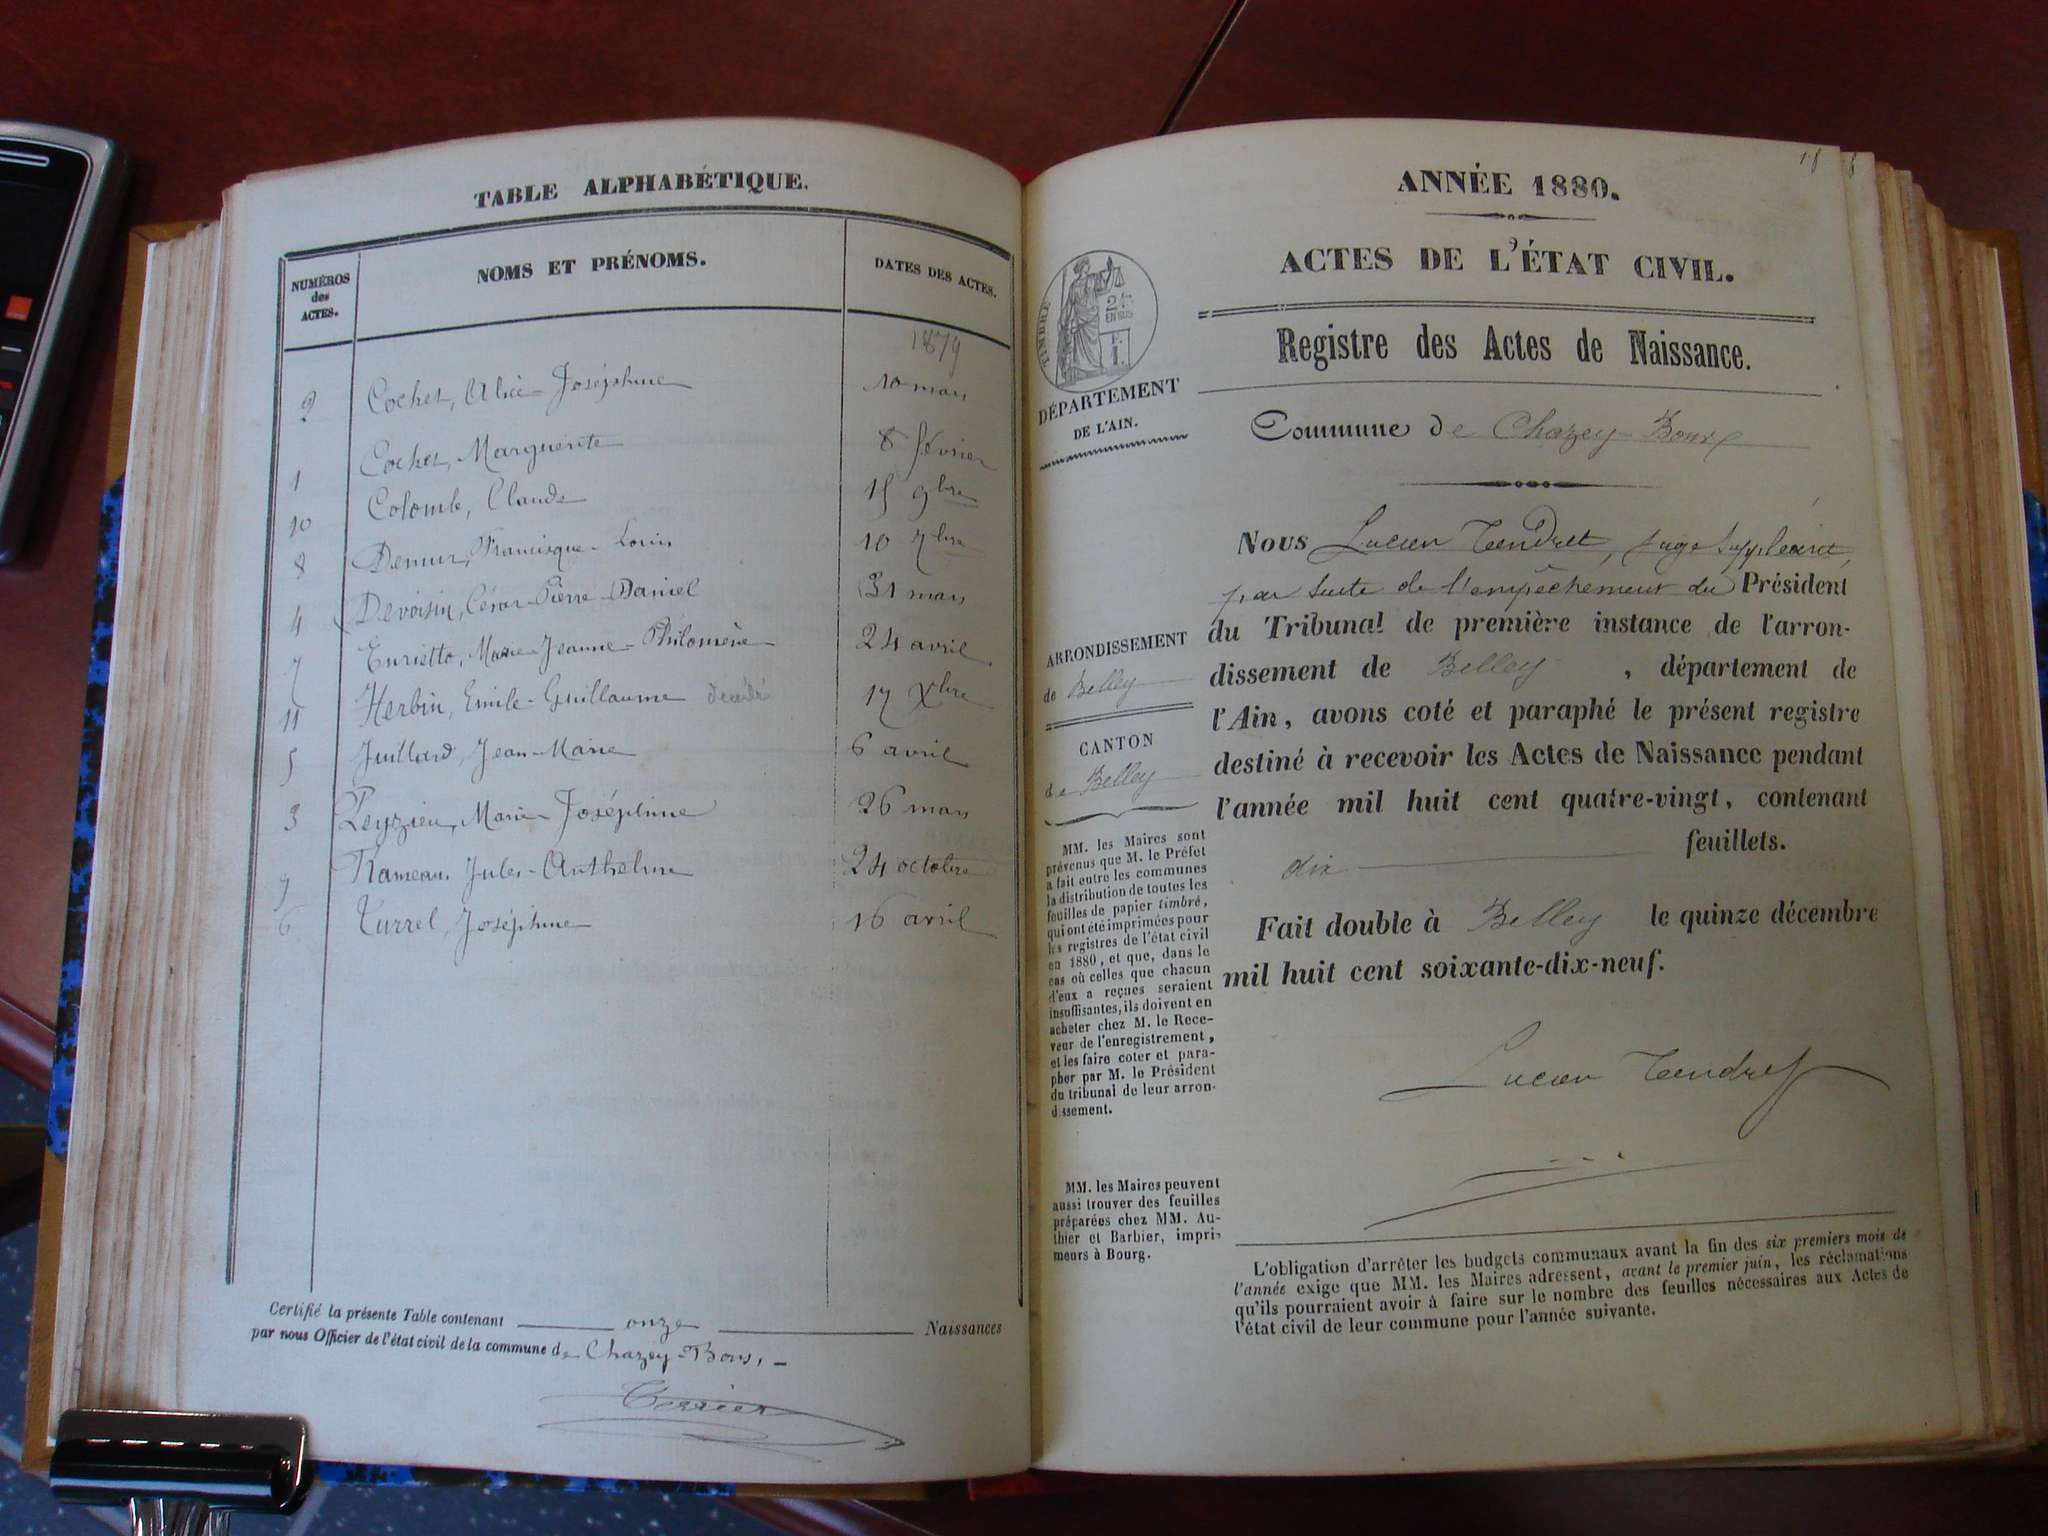 TABLE ALPHABÉTIQUE.
NUMÉROS des ACTES.
NOMS ET PRÉNOMS.
DATES DES ACTES.
1879
2 Cochet, Alice-Joséphine 10 mars
1 Cochet, Marguerite 8 février
10 Colomb, Claude 15 9bre
8 Demur, Francisque-Louis 10 7bre
4 Devoisin, César-Pierre-Daniel 31 mars
7 Enrietto, Marie-Jeanne-Philomène 24 avril
11 Herbin, Emile-Guillaume décédé 17 Xbre
5 Juillard, Jean-Marie 6 avril
3 Peyzieu, Marie-Joséphine 26 mars
9 Rameau, Jules-Anthelme 24 octobre
6 Turrel, Joséphine 16 avril
Certifié la présente Table contenant onze Naissances
par nous Officier de l'état civil de la commune de Chazey-Bons,
Terrier
ANNÉE 1880.
ACTES DE L'ÉTAT CIVIL.
Registre des Actes de Naissance.
Commune de Chazey-Bons
Nous Lucien Tendret, juge suppléant,
par suite de l'empêchement du Président
du Tribunal de première instance de l'arron-
dissement de Belley, département de
l'Ain, avons coté et paraphé le présent registre
destiné à recevoir les Actes de Naissance pendant
l'année mil huit cent quatre-vingt, contenant
dix feuillets.
Fait double à Belley le quinze décembre
mil huit cent soixante-dix-neuf.
Lucien Tendret
L'obligation d'arrêter les budgets communaux avant la fin des six premiers mois de
l'année exige que MM. les Maires adressent, avant le premier juin, les réclamations
qu'ils pourraient avoir à faire sur le nombre des feuilles nécessaires aux Actes de
l'état civil de leur commune pour l'année suivante.
TIMBRE
EN SUS
DÉPARTEMENT
DE L'AIN.
ARRONDISSEMENT
de Belley
CANTON
de Belley
MM. les Maires sont
prévenus que M. le Préfet
a fait entre les communes
la distribution de toutes les
feuilles de papier timbré,
qui ont été imprimées pour
les registres de l'état civil
en 1880, et que, dans le
cas où celles que chacun
d'eux a reçues seraient
insuffisantes, ils doivent en
acheter chez M. le Rece-
veur de l'enregistrement,
et les faire coter et para-
pher par M. le Président
du tribunal de leur arron-
dissement.
MM. les Maires peuvent
aussi trouver des feuilles
préparées chez MM. Au-
thier et Barbier, impri-
meurs à Bourg.